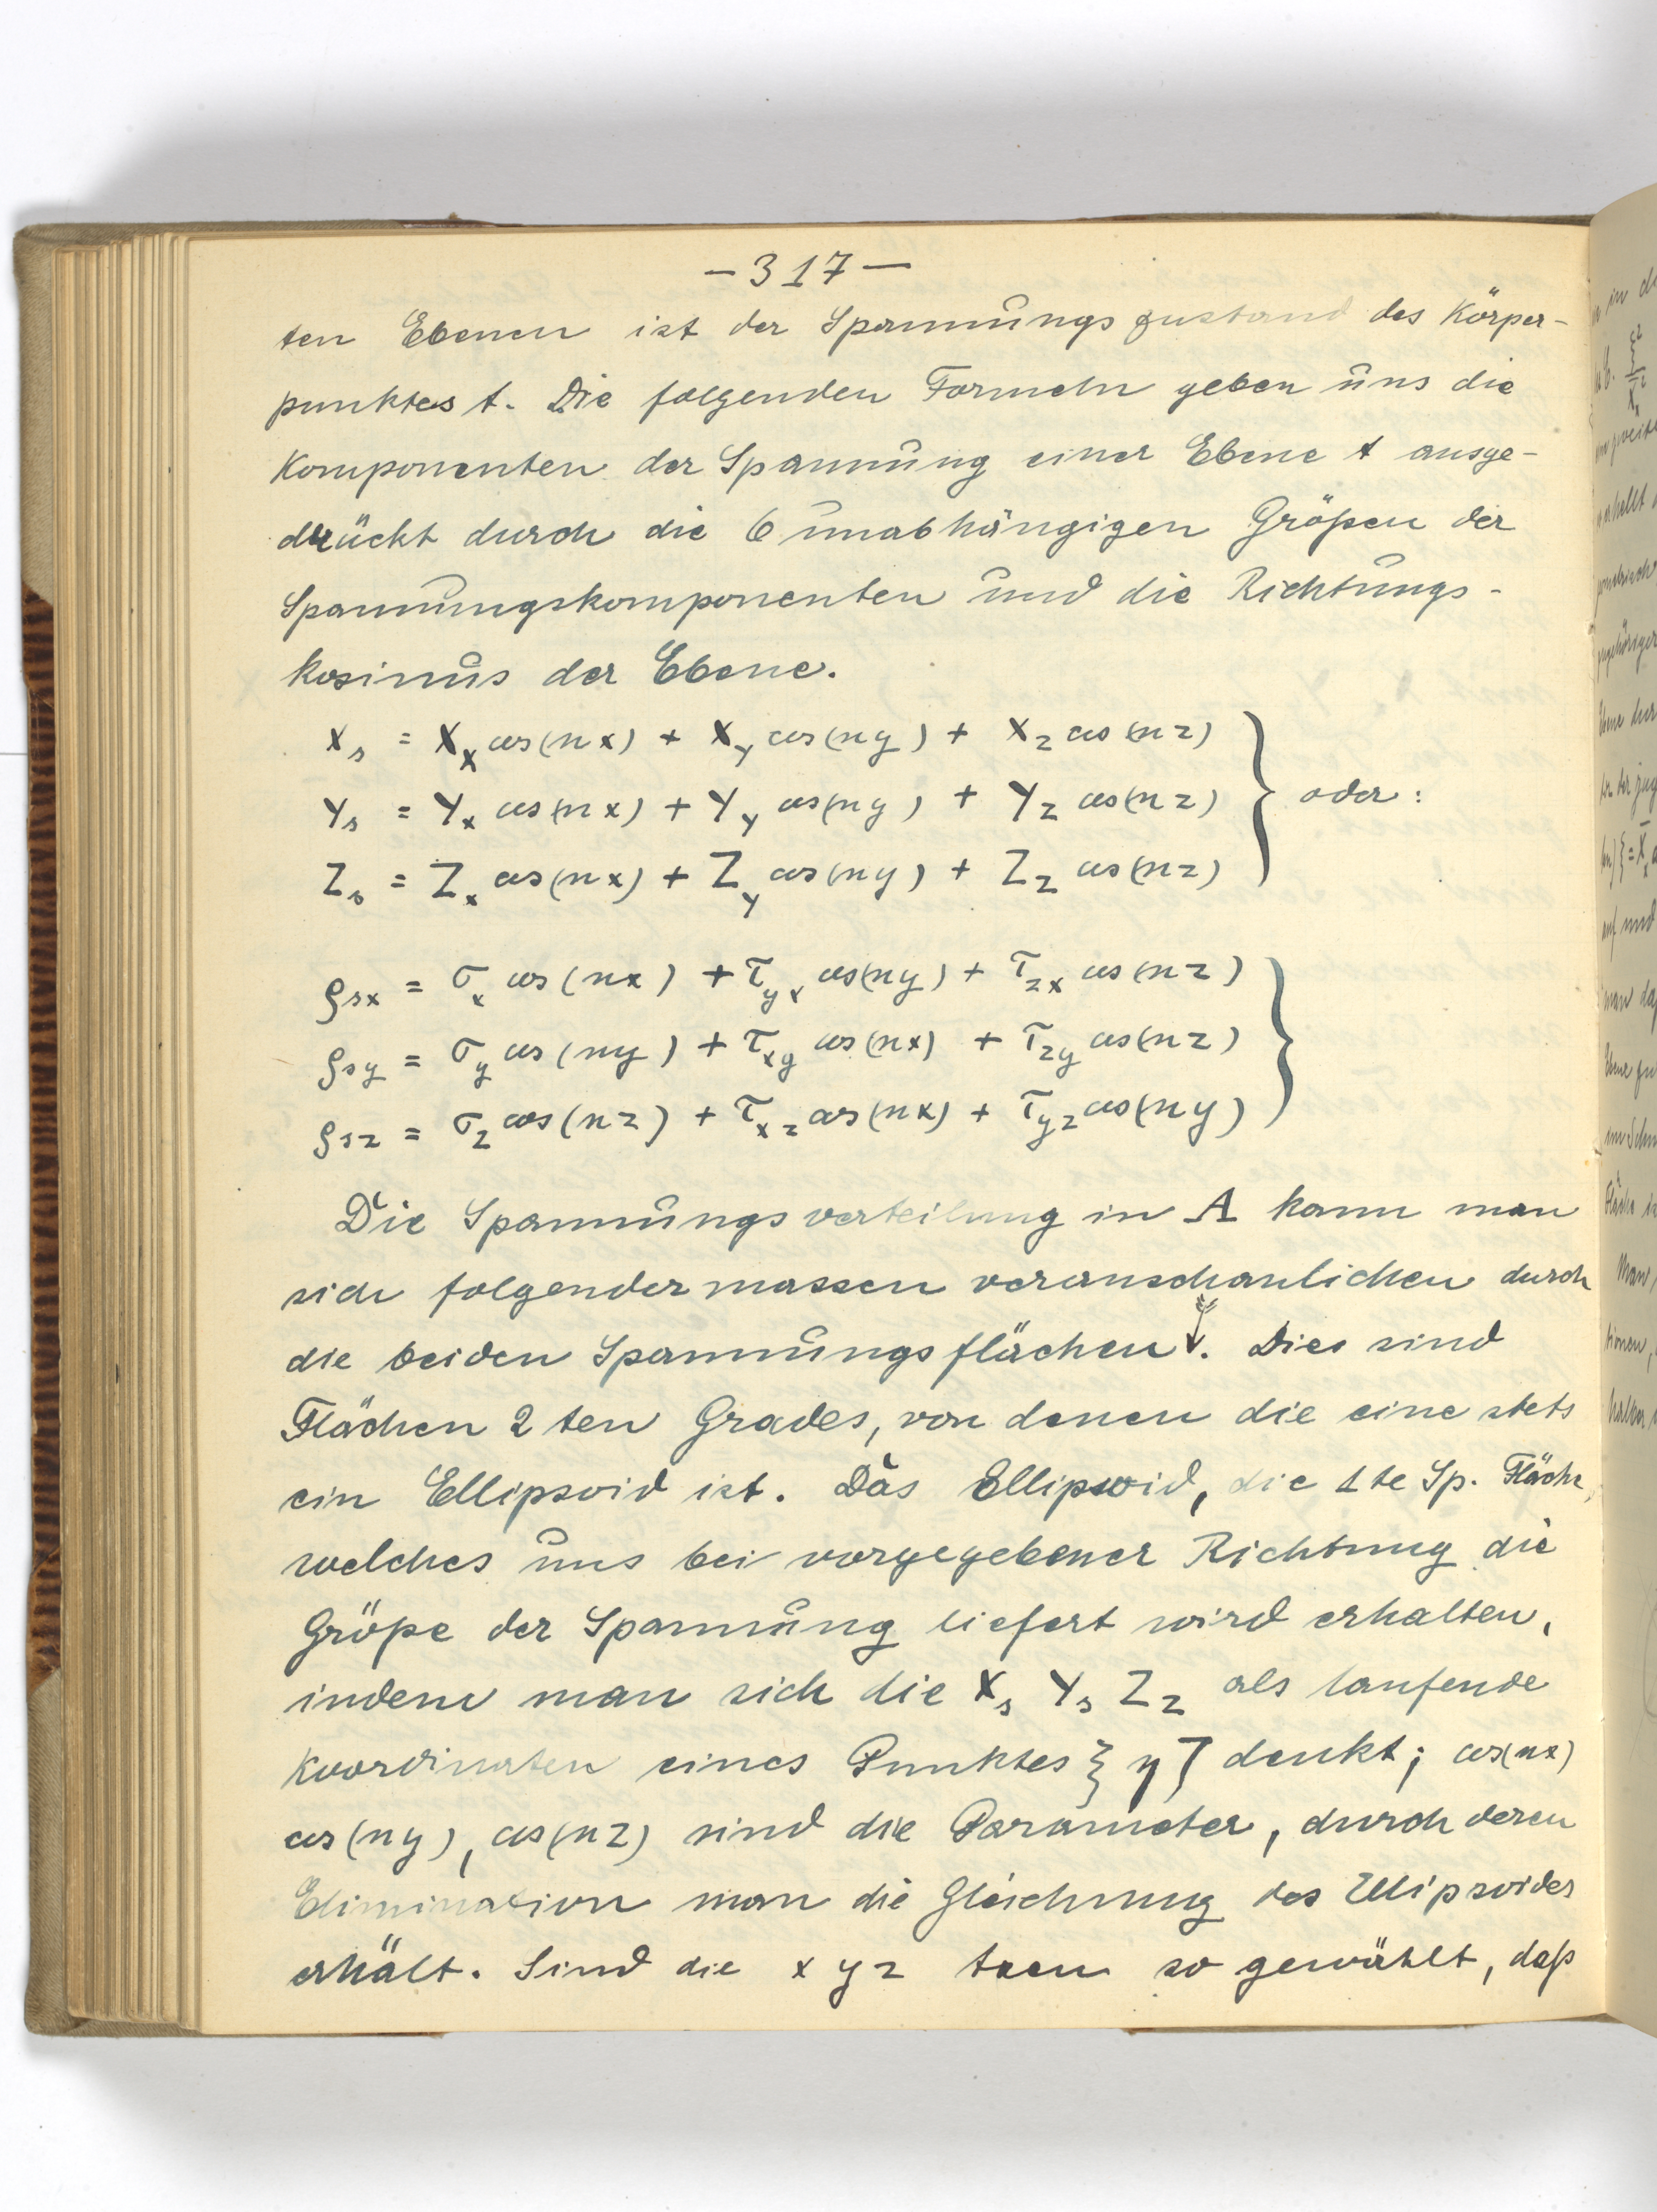 – 317 –
ten Ebenen ist der Spannungszustand des Körper-
punktes t. Die folgenden Formeln geben uns die
Komponenten der Spannung einer Ebene t ausge-
drückt durch die 6 unabhängigen Größen der
Spannungskomponenten und die Richtungs-
kosinus der Ebene.
X_s = X_x cos(nx) + X_y cos(ny) + X_z cos(nz)
Y_s = Y_x cos(nx) + Y_y cos(ny) + Y_z cos(nz) } oder:
Z_s = Z_x cos(nx) + Z_y cos(ny) + Z_z cos(nz)
ρ_sx = σ_x cos(nx) + τ_yx cos(ny) + τ_zx cos(nz)
ρ_sy = σ_y cos(ny) + τ_xy cos(nx) + τ_zy cos(nz) }
ρ_sz = σ_z cos(nz) + τ_xz cos(nx) + τ_yz cos(ny)
Die Spannungsverteilung in A kann man
sich folgendermassen veranschaulichen durch
die beiden Spannungsflächen. Dies sind
Flächen 2ten Grades, von denen die eine stets
ein Ellipsoid ist. Das Ellipsoid, die 1te Sp. Fläche,
welches uns bei vorgegebener Richtung die
Größe der Spannung liefert wird erhalten,
indem man sich die X_s Y_s Z_z als laufende
Koordinaten eines Punktes ξ η ζ denkt; cos(nx)
cos(ny), cos(nz) sind die Parameter, durch deren
Elimination man die Gleichung des Ellipsoides
erhält. Sind die x y z so gewählt, daß